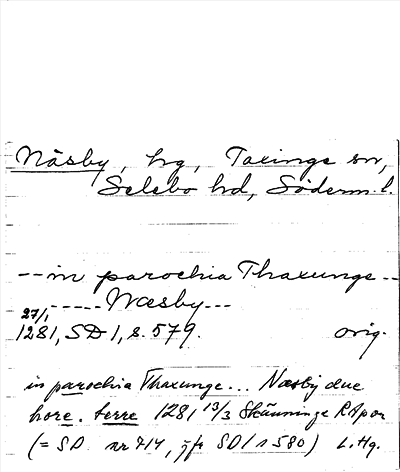 Näsby, hg, Taxinge sn,
Selebo hd, Söderm. l.
--in parochia Thaxunge--
----- Næsby---
27/1
1281, SD 1, s. 579. orig.
in parochia Thaxunge... Næsby due
hore. terre 1281 13/3 Skänninge RApor
(= SD nr 714, jfr SD 1 s 580) L. Hg.